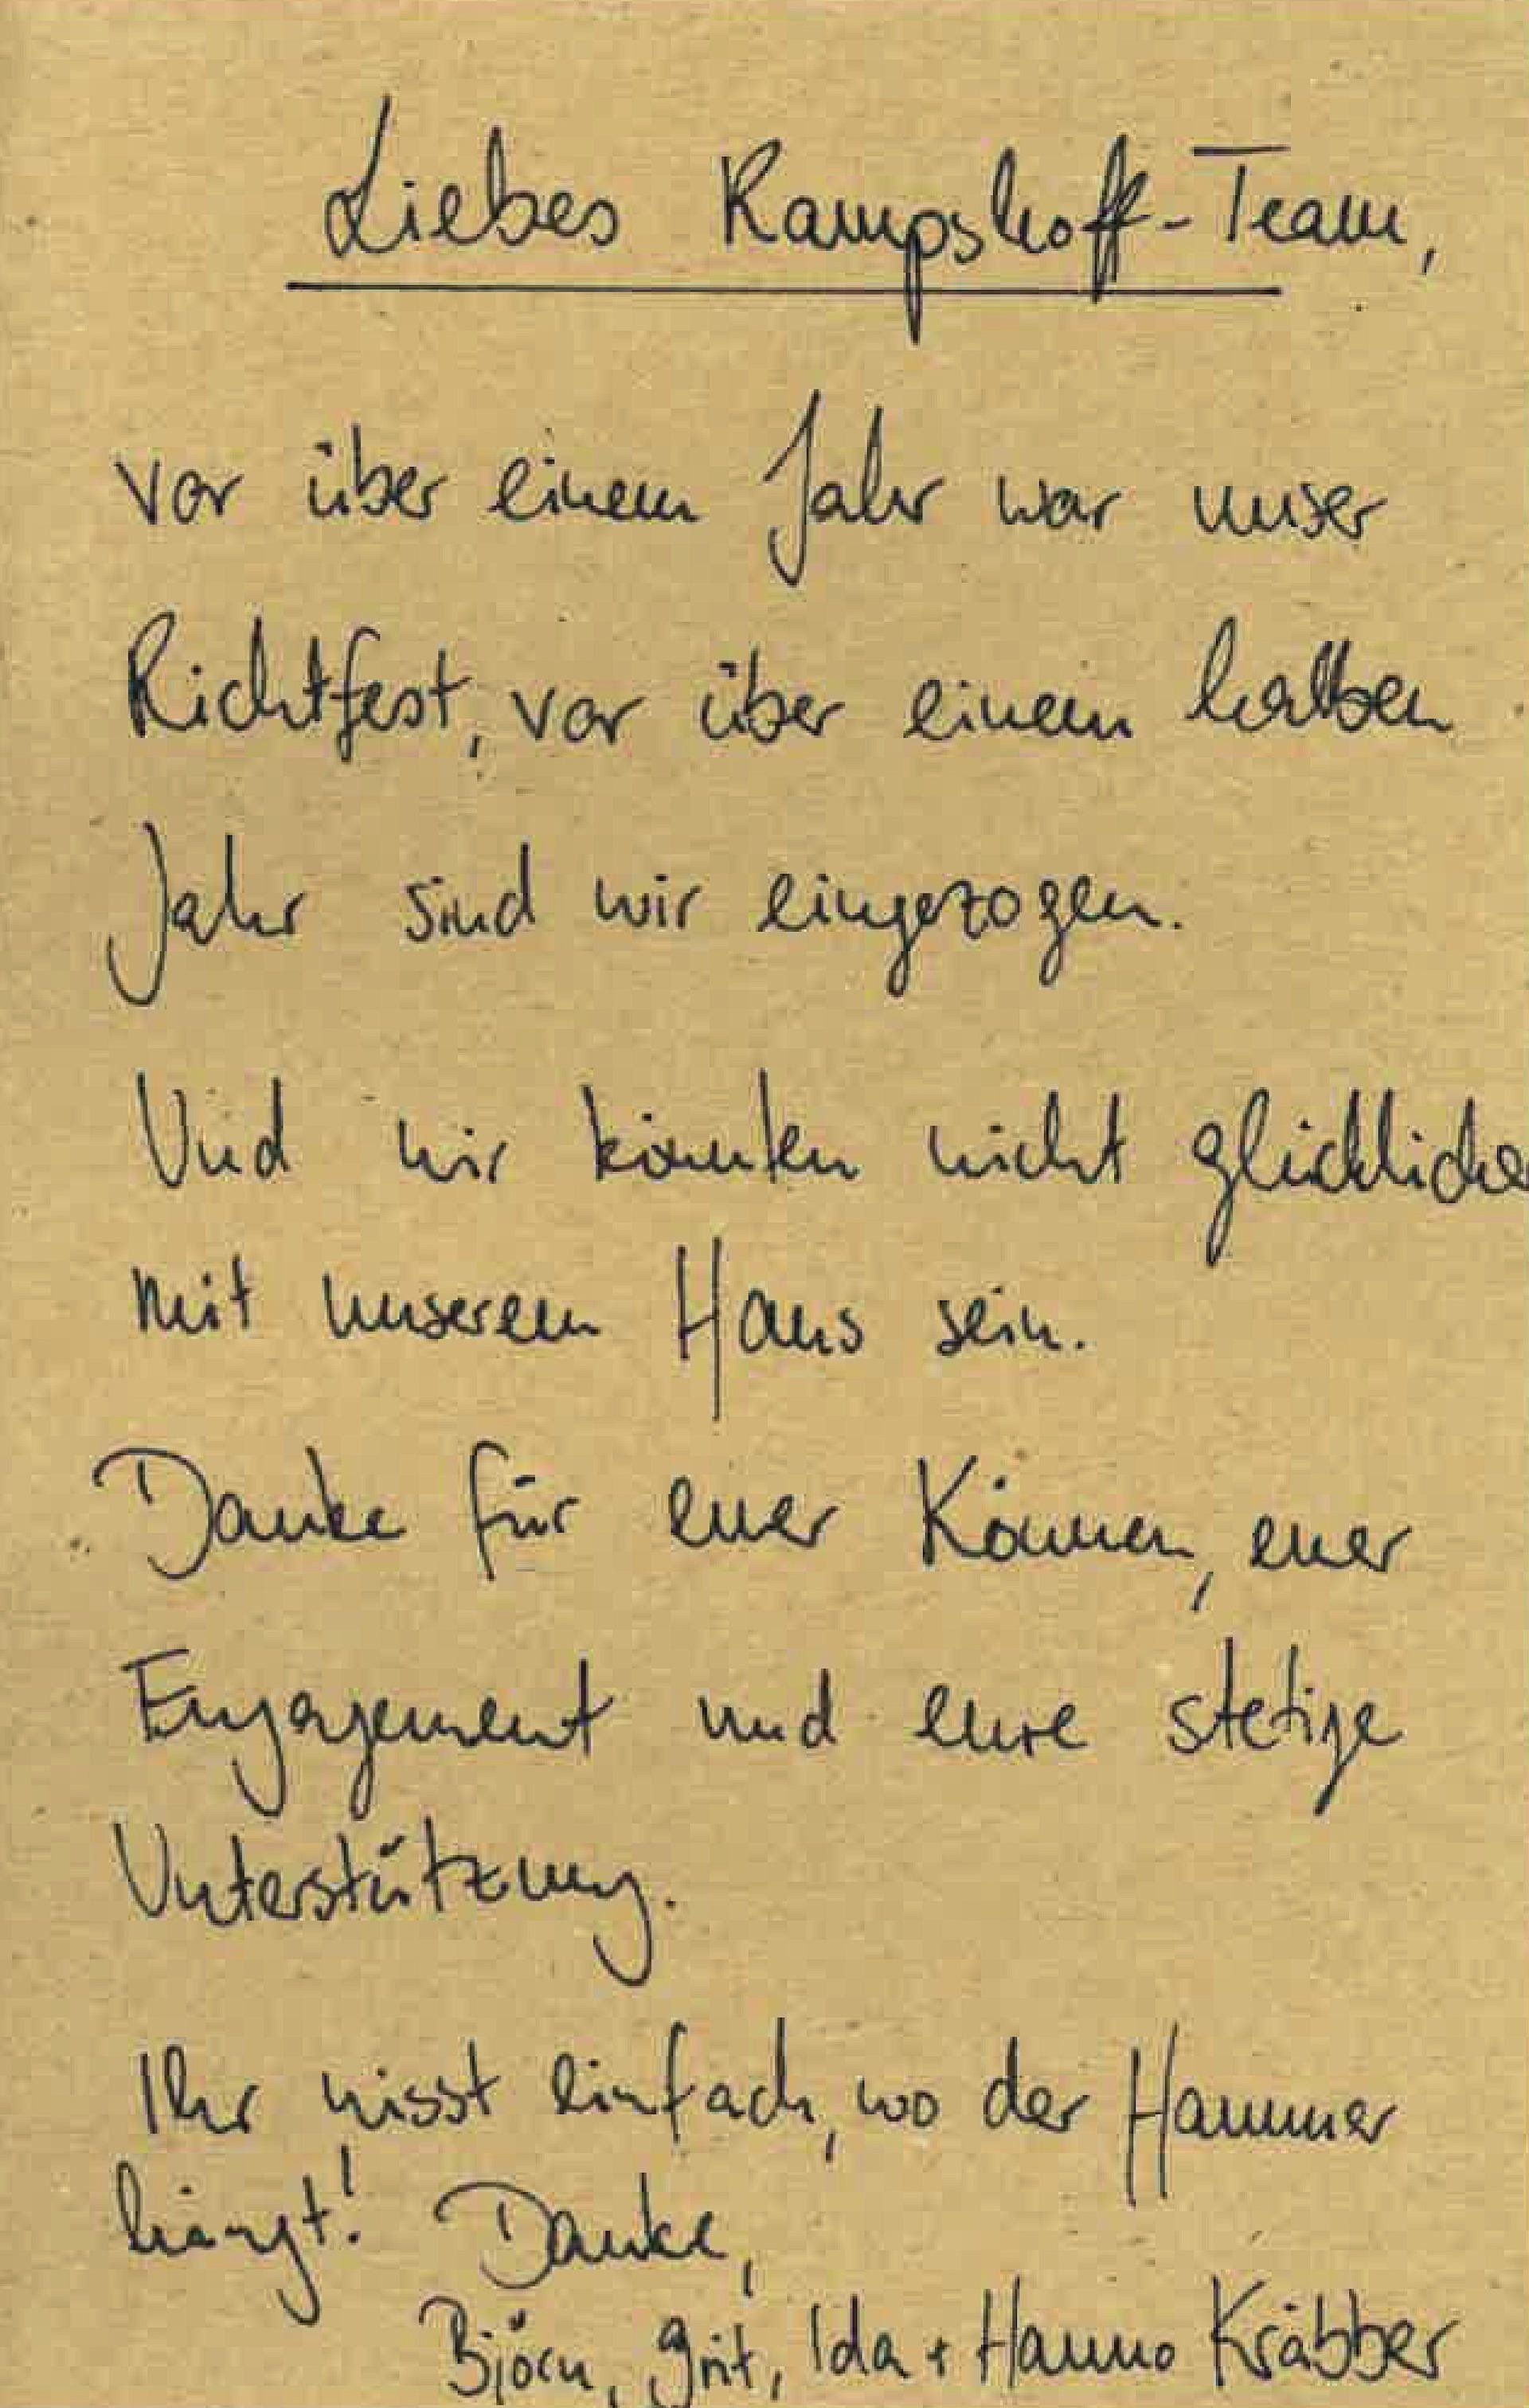 Liebes Kampshoff-Team,
vor über einem Jahr war unser
Richtfest, vor über einem halben
Jahr sind wir eingezogen.
Und wir könnten nicht glücklicher
mit unserem Haus sein.
Danke für euer Können, euer
Engagement und eure stetige
Unterstützung.
Ihr wisst einfach, wo der Hammer
hängt! Danke,
Björn, Grit, Ida + Hanno Kräbber